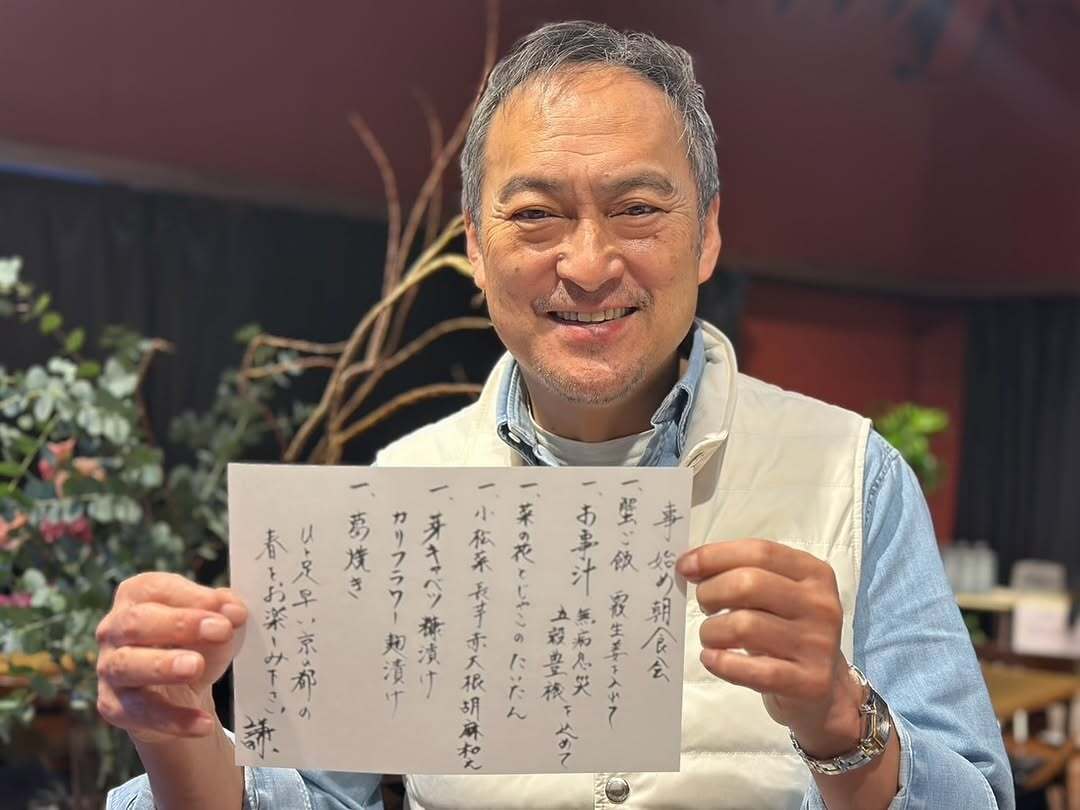 事始め朝食会
一、蟹ご飯 霞生姜を入れて
一、お事汁 無病息災
五穀豊穣を込めて
一、菜の花とじゃこのたいたん
一、小松菜長芋赤大根胡麻和え
一、芽キャベツ糠漬け
カリフラワー麹漬け
一、葛焼き
ひと足早い京の都の
春をお楽しみ下さい
謙